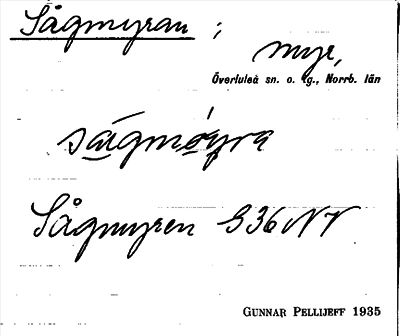 Sågmyran ;
myr,
Överluleå sn. o. tg., Norrb. län
sågmóyra
Sågmyren G36NV
GUNNAR PELLIJEFF 1935